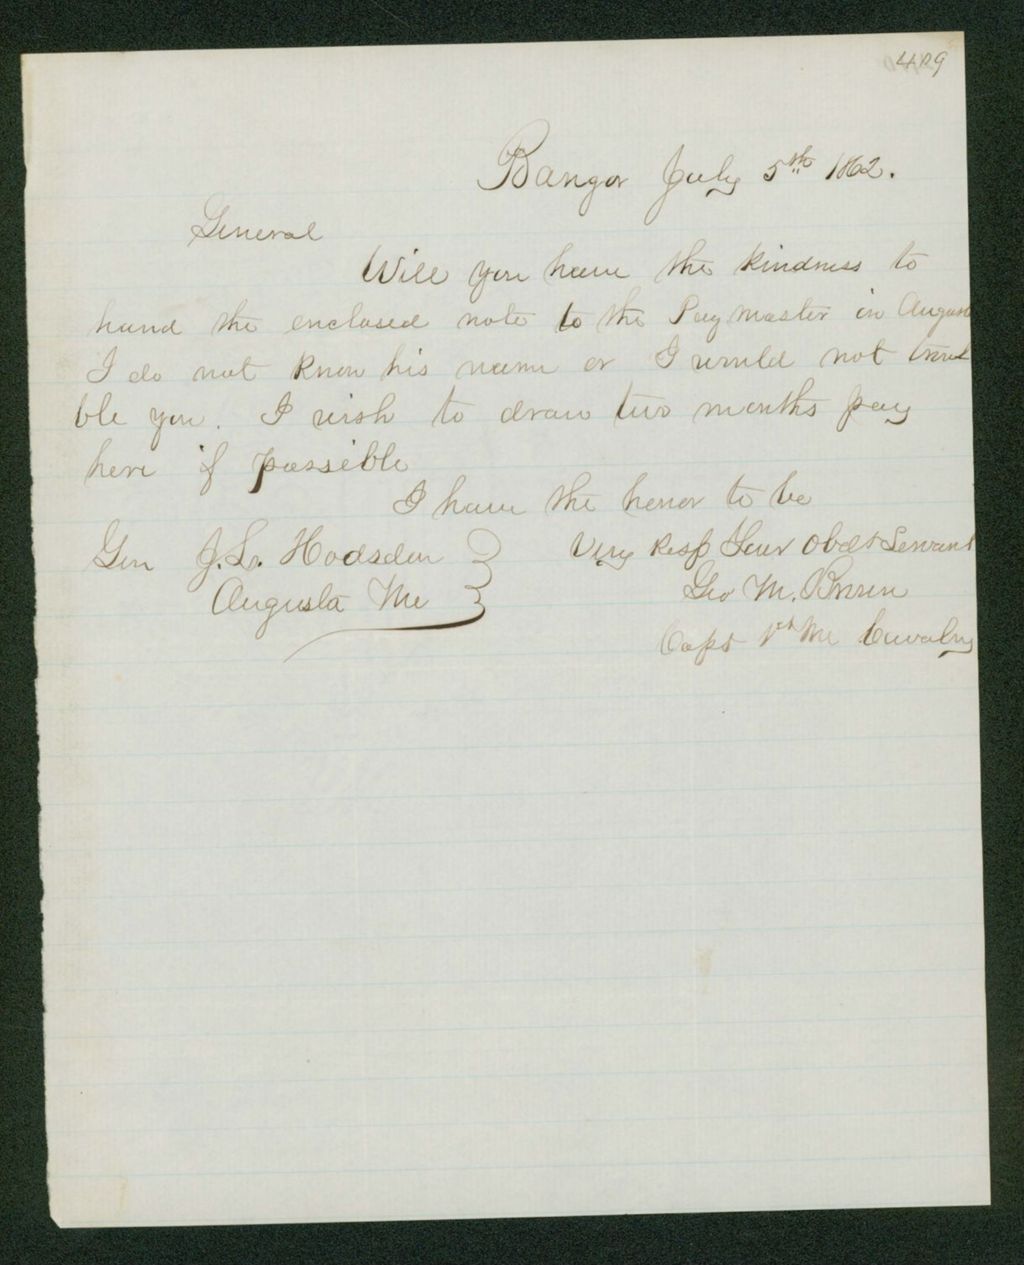 409
Bangor July 5th 1862.
General
Will you have the kindness to
hand the enclosed note to the Paymaster in Augusta
I do not know his name or I would not trou
ble you. I wish to draw two months pay
here if possible
I have the honor to be
Gen J. L. Hodsdon Very Resp Your Obdt Servant
Augusta Me Geo M. Brown
Capt 1st Me Cavalry